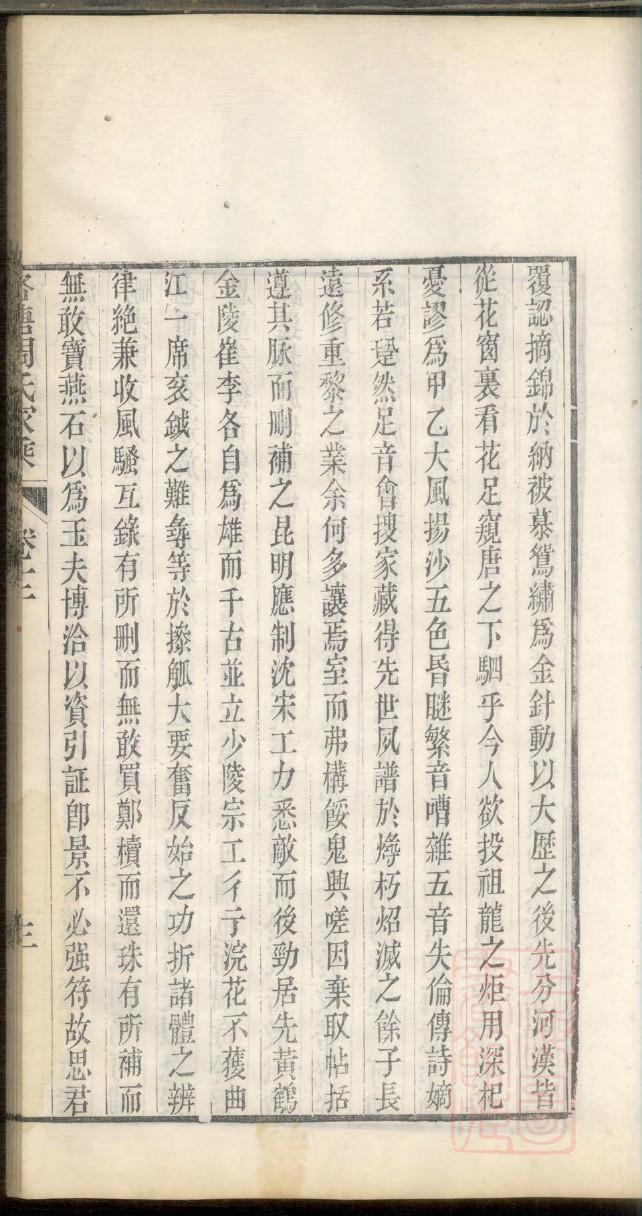 覆認摘錦於納被慕鴛繡爲金針動以大歷之後先分河漢皆
從花窗裏看花足窺唐之下駟乎今人欲投祖龍之炬用深杞
憂謬爲甲乙大風揚沙五色昏瞇繁音嘈雜五音失倫傳詩嫡
系若跫然足音會搜家藏得先世夙譜於燬朽炤滅之餘子長
遠修重黎之業余何多讓焉室而弗構餒鬼興嗟因棄取帖括
遵其脉而刪補之昆明應制沈宋工力悉敵而後勁居先黃鶴
金陵崔李各自爲雄而千古並立少陵宗工彳亍浣花不獲曲
江一席衮鉞之難彝等於操觚大要奮反始之功折諸體之辨
律絶兼收風騷互錄有所刪而無敢買鄭櫝而還珠有所補而
無敢寶燕石以爲玉夫博洽以資引証卽景不必强符故思君
周氏家乘 卷十二 三